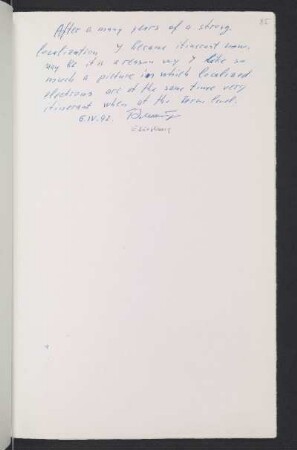 85
After a many years of a strong
localization I became itinerant now,
may be it is a reason why I like so
much a picture in which localized
electrons are at the same time very
itinerant when at the Fermi level.
6.IV.92.